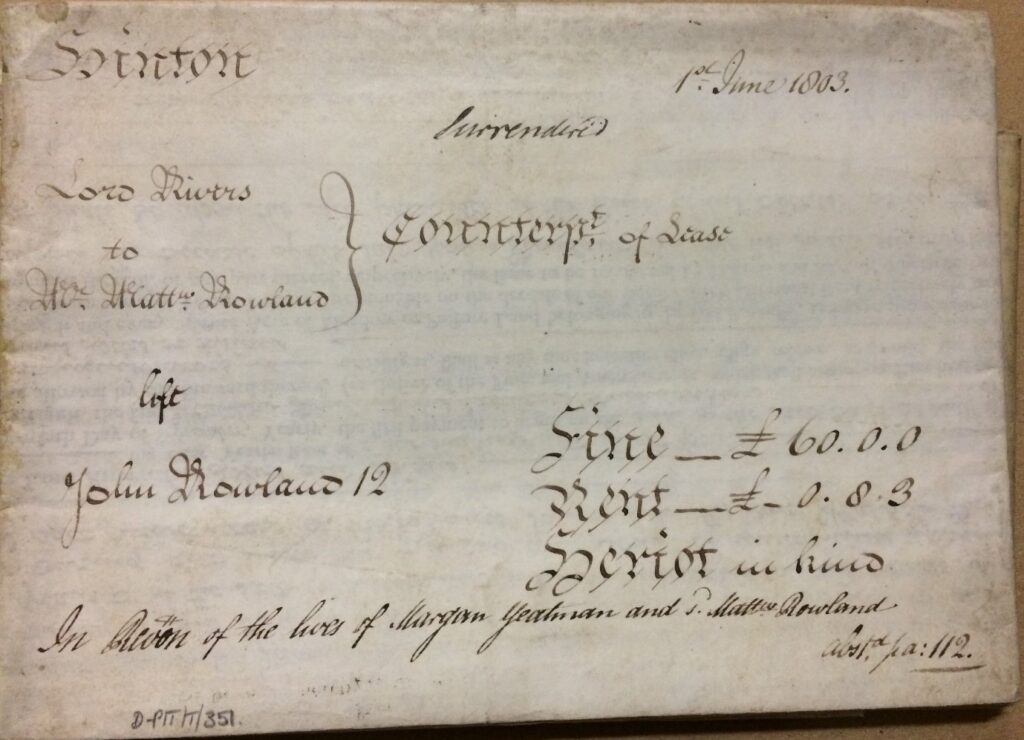 Hinton
1st June 1803.
Surrendered
Lord Rivers
to
Mr. Mattw. Rowland
Counterpt. of Lease
life
John Rowland 12
Fine — £60.0.0
Rent — £-0.8.3
Heriot in kind
In Revon of the lives of Morgan Yeatman and Mattw. Rowland
abstd. pa: 112.
D-PIT/T/351.